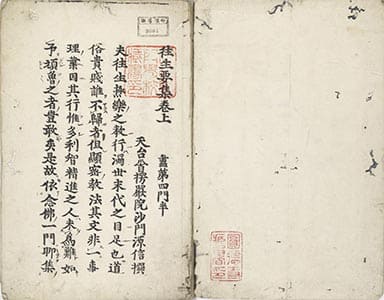 往生要集卷上　盡第四門半
天台首楞嚴院沙門源信撰
夫往生極樂之教行濁世末代之目足也道
俗貴賤誰不歸者但顯密教法其文非一事
理業因其行惟多利智精進之人未爲難如
予頑魯之者豈敢矣是故依念佛一門聊集